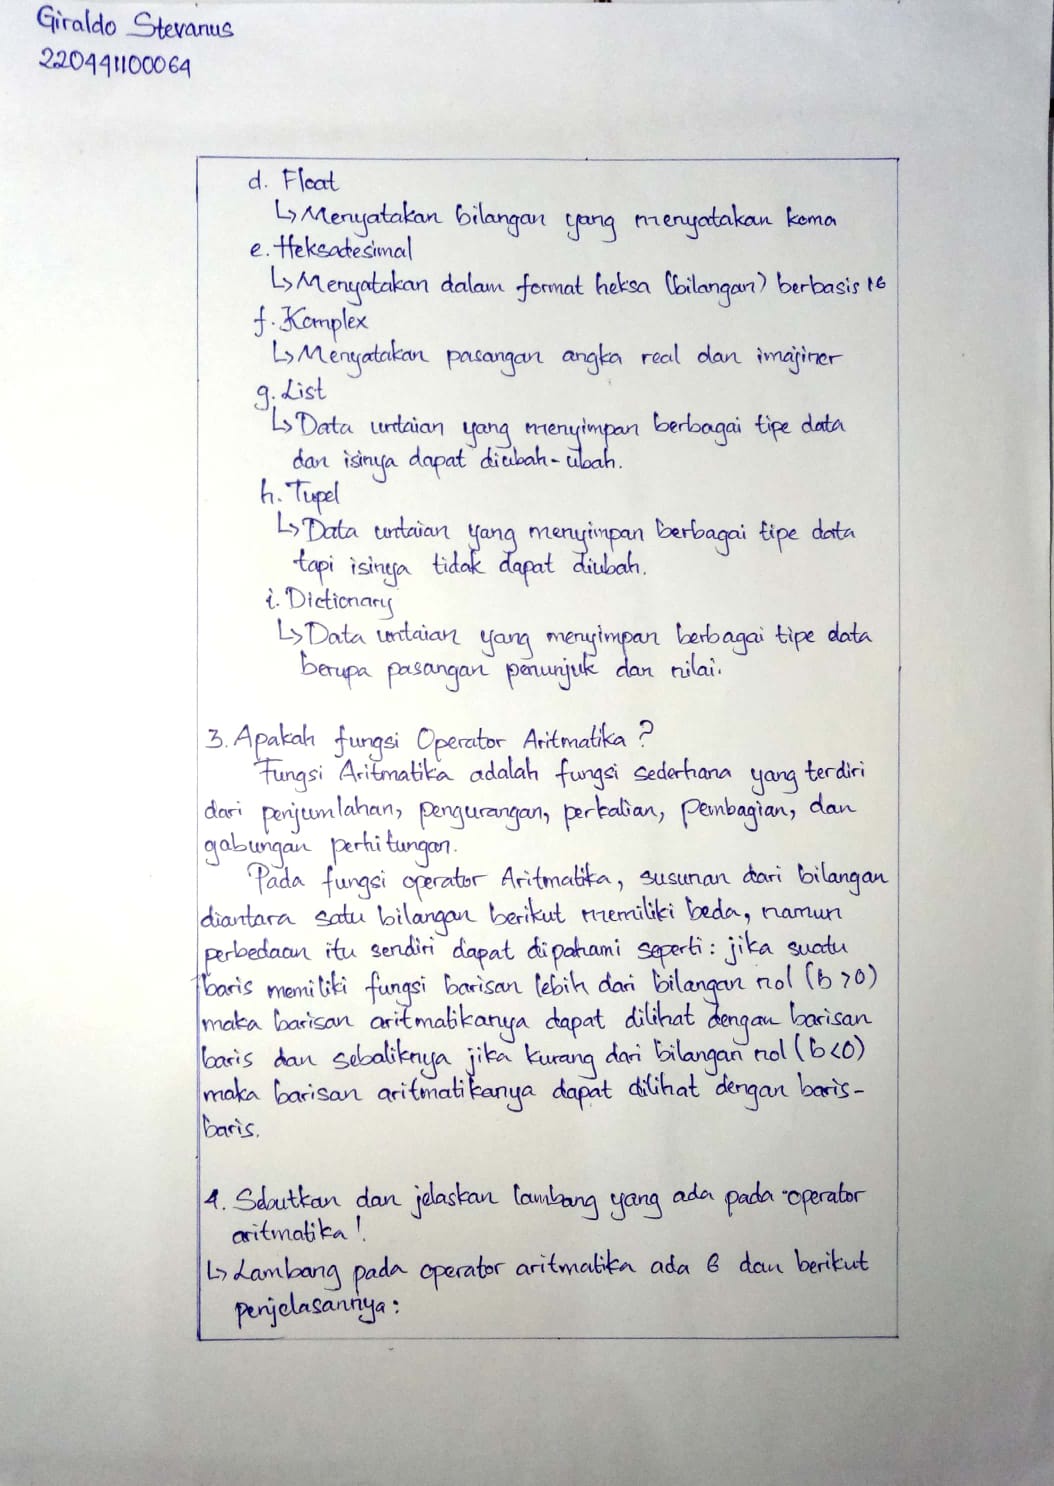 Giraldo Stevanus
220441100064
d. Float
↳ Menyatakan bilangan yang menyatakan koma
e. Heksadesimal
↳ Menyatakan dalam format heksa (bilangan) berbasis 16
f. Komplex
↳ Menyatakan pasangan angka real dan imajiner
g. List
↳ Data untaian yang menyimpan berbagai tipe data
dan isinya dapat diubah-ubah.
h. Tupel
↳ Data untaian yang menyimpan berbagai tipe data
tapi isinya tidak dapat diubah.
i. Dictionary
↳ Data untaian yang menyimpan berbagai tipe data
berupa pasangan penunjuk dan nilai.
3. Apakah fungsi Operator Aritmatika ?
Fungsi Aritmatika adalah fungsi sederhana yang terdiri
dari penjumlahan, pengurangan, perkalian, pembagian, dan
gabungan perhitungan.
Pada fungsi operator Aritmatika, susunan dari bilangan
diantara satu bilangan berikut memiliki beda, namun
perbedaan itu sendiri dapat dipahami seperti : jika suatu
baris memiliki fungsi barisan lebih dari bilangan nol (b > 0)
maka barisan aritmatikanya dapat dilihat dengan barisan
baris dan sebaliknya jika kurang dari bilangan nol (b < 0)
maka barisan aritmatikanya dapat dilihat dengan baris-
baris.
4. Sebutkan dan jelaskan lambang yang ada pada operator
aritmatika !
↳ Lambang pada operator aritmatika ada 6 dan berikut
penjelasannya :